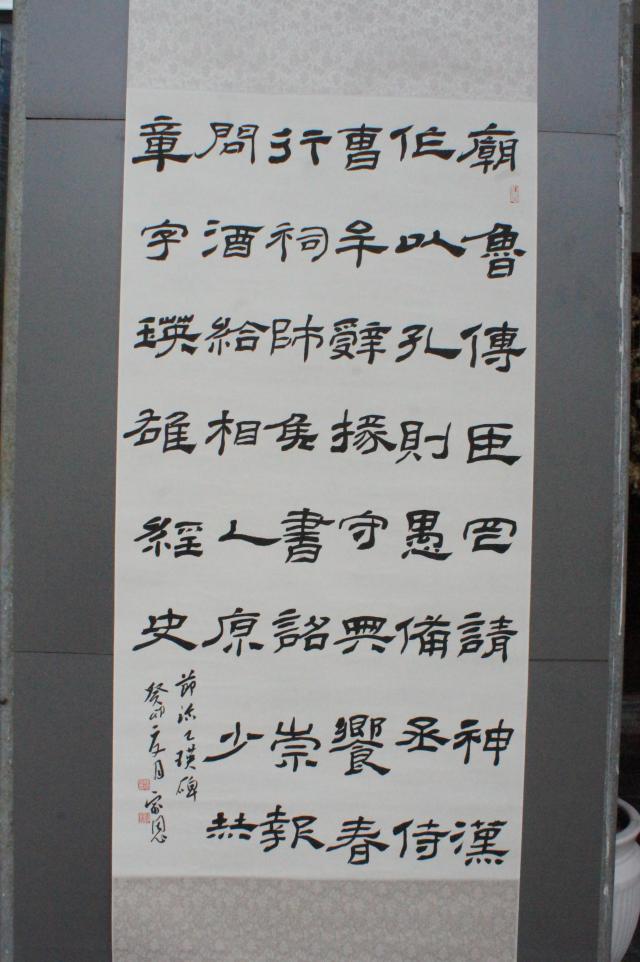 廟魯傳臣請神漢
作以孔則愚備丞侍
曹辭掾守典饗春
行祠師侯書詔崇報
問酒給相人原少共
章字瑛雄經史
節臨乙瑛碑
癸卯月家恩